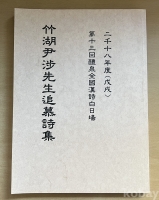 二千十八年度(戊戌)
第十三回醴泉全國漢詩白日場
竹湖尹涉先生追慕詩集